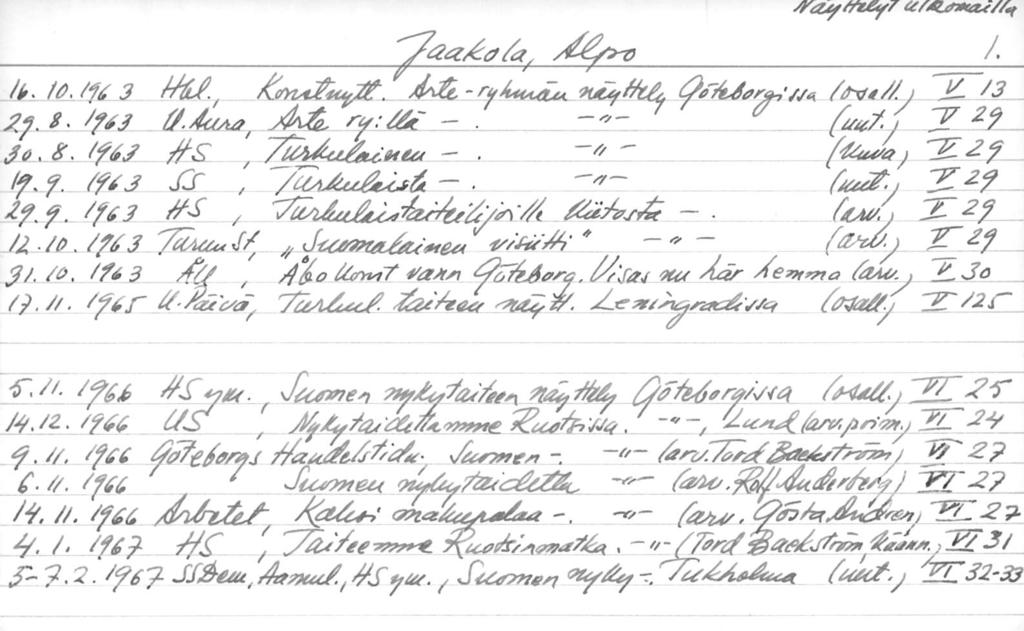 Näyttelyt ulkomailla
Jaakola, Alpo 1.
16.10.1963 Hbl., Konstnytt. Arte-ryhmän näyttely Göteborgissa (osall.) V 13
29.8.1963 U.Aura, Arte ry:llä -. -"- (uut.) V 29
30.8.1963 HS, Turkulainen -. -"- (kuva) V 29
19.9.1963 SS, Turkulaista -. -"- (uut.) V 29
29.9.1963 HS, Turkulaistaiteilijoille kiitosta -. (arv.) V 29
12.10.1963 TurunSt, "Suomalainen visiitti" -"- (arv.) V 29
31.10.1963 ÅU, Åbokonst vann Göteborg. Visas nu här hemma (arv.) V 30
17.11.1965 U.Päivä, Turkul. taiteen näytt. Leningradissa (osall.) V 125
5.11.1966 HS ym., Suomen nykytaiteen näyttely Göteborgissa (osall.) VI 25
14.12.1966 US, Nykytaidettamme Ruotsissa. -"-, Lund (arv.poim.) VI 24
9.11.1966 Göteborgs Handelstidn. Suomen -. -"- (arv. Tord Baeckström) VI 27
6.11.1966 Suomen nykytaidetta -"- (arv. Rolf Anderberg) VI 27
14.11.1966 Arbetet, Kaksi makupalaa -. -"- (arv. Gösta Andrén) VI 27
4.1.1967 HS, Taiteemme Ruotsinmatka. -"- (Tord Baeckström, käänn.) VI 31
5-7.2.1967 SSDem, Aamul., HS ym., Suomen nyky -. Tukholma (uut.) VI 32-33